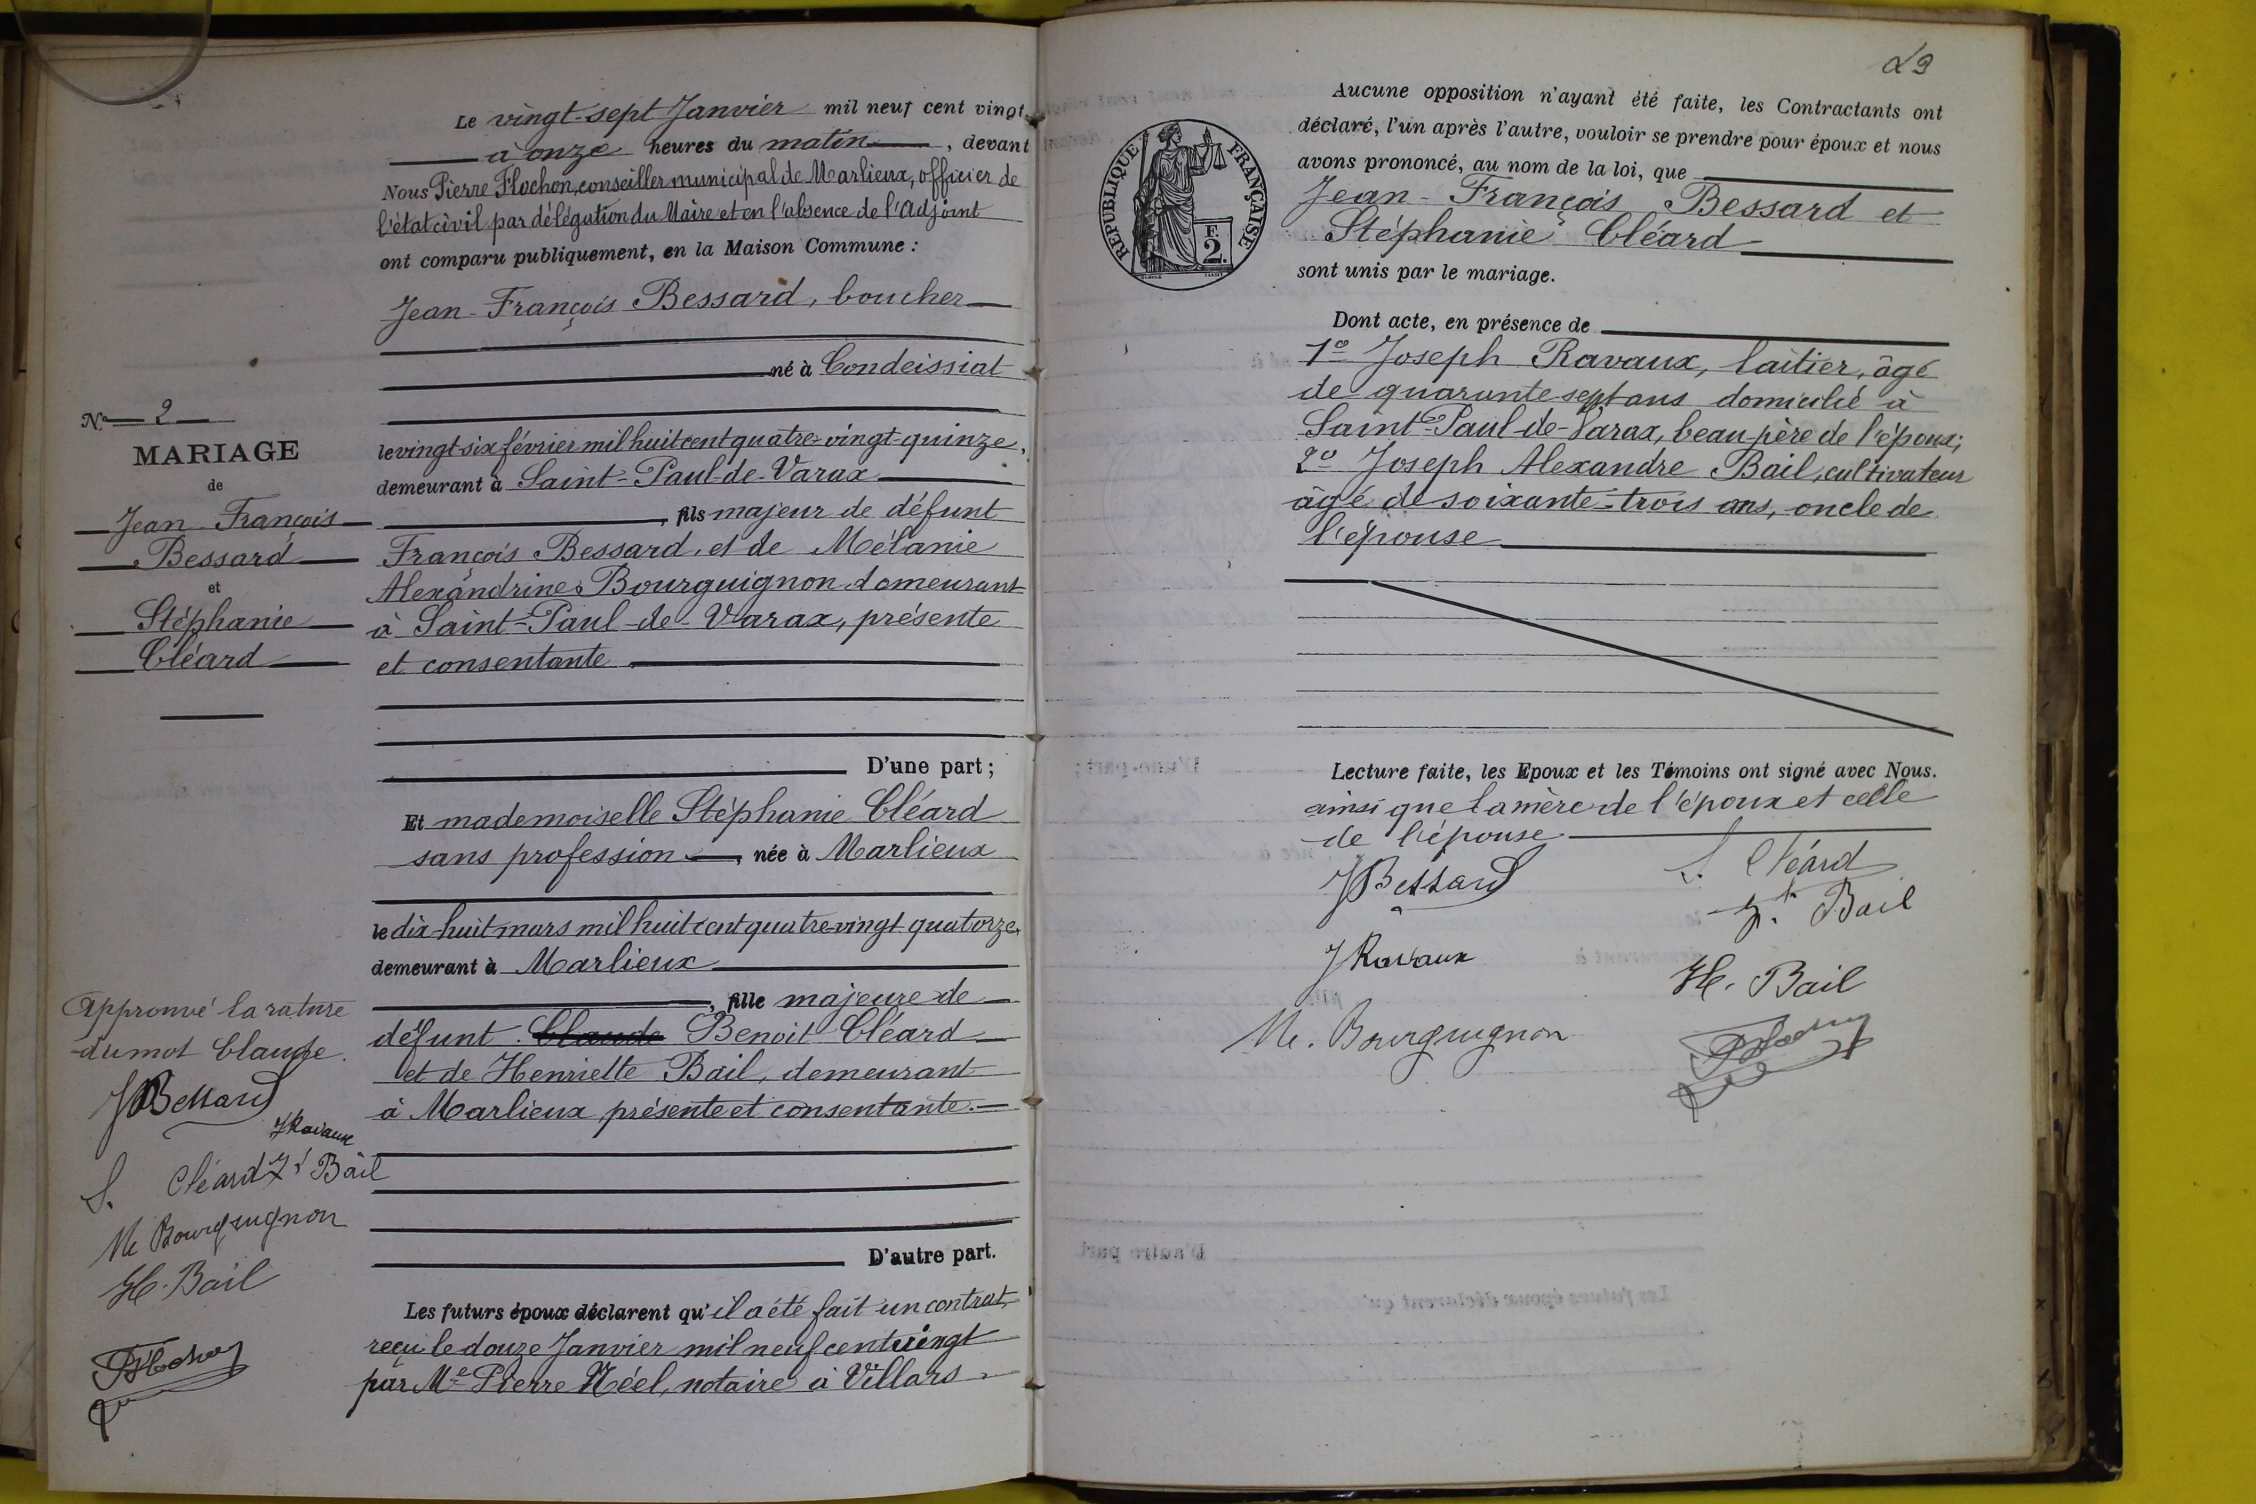 Le vingt-sept Janvier mil neuf cent vingt,
à onze heures du matin, devant
Nous Pierre Flochon, conseiller municipal de Marlieux, officier de
l'état civil par délégation du Maire et en l'absence de l'Adjoint
ont comparu publiquement, en la Maison Commune :
Jean-François Bessard, boucher
né à Condeissiat
le vingt-six février mil huit cent quatre-vingt-quinze,
demeurant à Saint-Paul-de-Varax
, fils majeur de défunt
François Bessard, et de Mélanie
Alexandrine Bourguignon demeurant
à Saint-Paul-de-Varax, présente
et consentante
D'une part ;
Et mademoiselle Stéphanie Cléard
sans profession, née à Marlieux
le dix-huit mars mil huit cent quatre-vingt-quatorze,
demeurant à Marlieux
, fille majeure de
défunt Claude Benoît Cléard
et de Henriette Bail, demeurant
à Marlieux, présente et consentante.
D'autre part.
Les futurs époux déclarent qu'il a été fait un contrat
reçu le douze Janvier mil neuf cent vingt
par Me Pierre Néel, notaire à Villars.
No 2
MARIAGE
de
Jean-François
Bessard
et
Stéphanie
Cléard
Approuvé la rature
du mot Claude.
J Bessard
J Ravaux
S. Cléard Jh Bail
Me Bourguignon
H. Bail
P Flochon
29
RÉPUBLIQUE FRANÇAISE
F.
2.
Aucune opposition n'ayant été faite, les Contractants ont
déclaré, l'un après l'autre, vouloir se prendre pour époux et nous
avons prononcé, au nom de la loi, que
Jean-François Bessard et
Stéphanie Cléard
sont unis par le mariage.
Dont acte, en présence de
1o Joseph Ravaux, laitier, âgé
de quarante-sept ans domicilié à
Saint-Paul-de-Varax, beau-père de l'époux;
2o Joseph Alexandre Bail, cultivateur
âgé de soixante-trois ans, oncle de
l'épouse
Lecture faite, les Epoux et les Témoins ont signé avec Nous.
ainsi que la mère de l'époux et celle
de l'épouse.
J Bessard
S. Cléard
Jh. Bail
J Ravaux
H. Bail
Me. Bourguignon
P Flochon